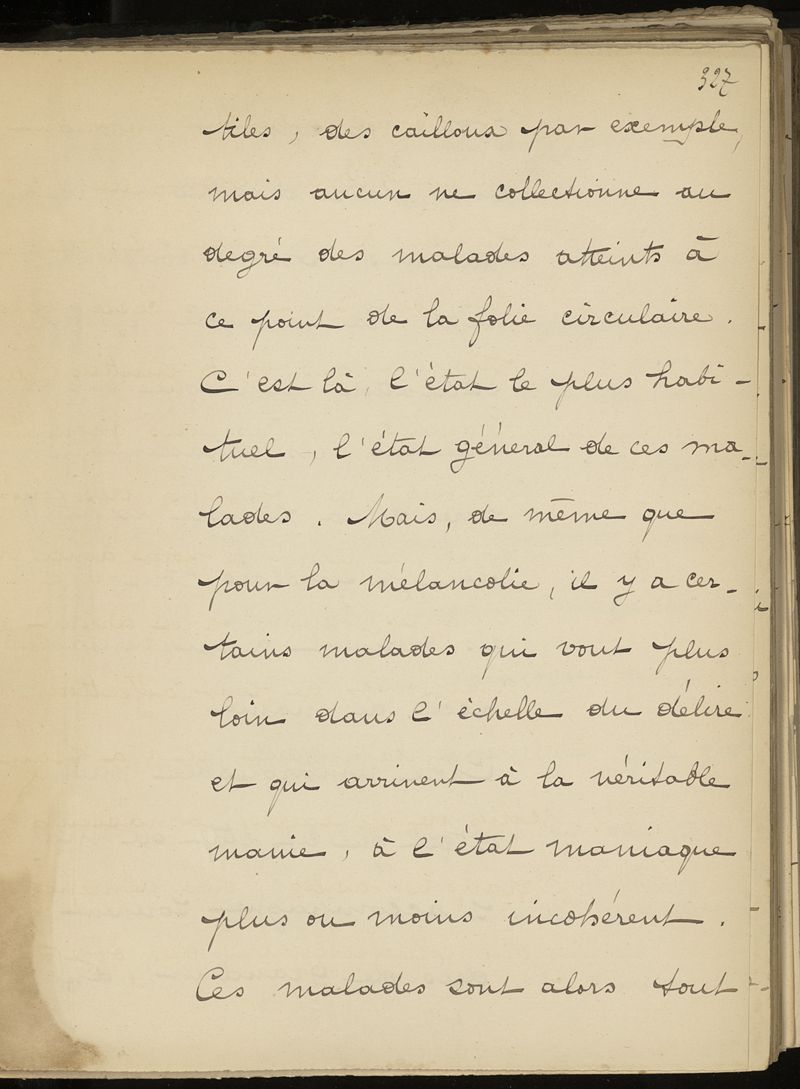 327
tiles, des cailloux par exemple,
mais aucun ne collectionne au
degré des malades atteints à
ce point de la folie circulaire.
C'est là, l'état le plus habi-
tuel, l'état général de ces ma-
lades. Mais, de même que
pour la mélancolie, il y a cer-
tains malades qui vont plus
loin dans l'échelle du délire
et qui arrivent à la véritable
manie, à l'état maniaque
plus ou moins incohérent.
Ces malades sont alors tout